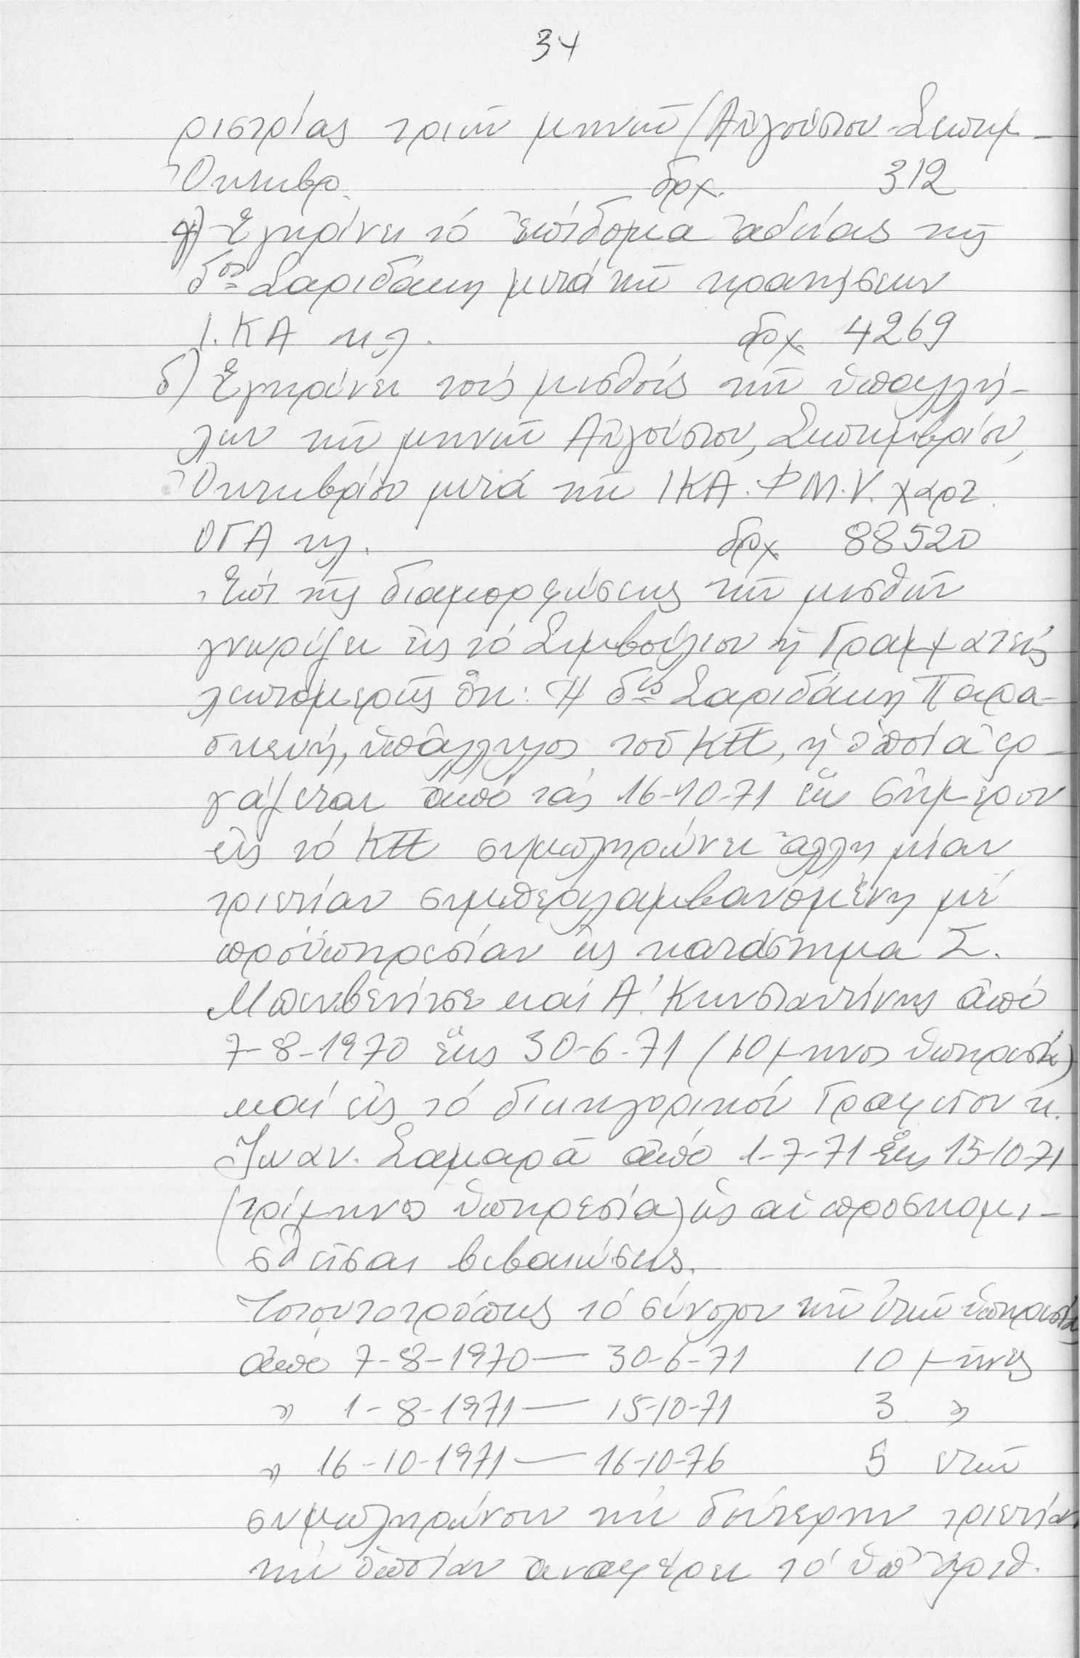 34
ριστρίας τριῶν μηνῶν (Αὐγούστου-Σεπτμ-
Ὀκτωβρ. δρχ. 312
γ) Ἐγκρίνει τό ἐπίδομα ἀδείας τῆς
δος Σαριδάκη μετά τῶν κρατήσεων
Ι.ΚΑ κ.λ. δρχ 4269
δ) Ἐγκρίνει τούς μισθούς τῶν ὑπαλλή-
λων τῶν μηνῶν Αὐγούστου, Σεπτεμβρίου,
Ὀκτωβρίου μετά τῶν ΙΚΑ. ΦΜ.Υ. χαρτ.
ΟΓΑ κλ. δρχ 88520
Ἐπί τῆς διαμορφώσεως τῶν μισθῶν
γνωρίζει εἰς τό Συμβούλιον ἡ Γραμματεύς
λεπτομερῶς ὅτι: Ἡ δις Σαριδάκη Παρα-
σκευή, ὑπάλληλος τοῦ ΚΠ, ἡ ὁποία ἐρ-
γάζεται ἀπό τάς 16-10-71 ἕως σήμερον
εἰς τό ΚΠ συμπληρώνει ἄλλη μίαν
τριετίαν συμπεριλαμβανομένη μέ
προϋπηρεσίαν εἰς κατάστημα Σ.
Μπενβενίσε καί Α. Κωνσταντίνης ἀπό
7-8-1970 ἕως 30-6-71 (10μηνος ὑπηρεσία)
καί εἰς τό δικηγορικόν Γραφεῖον κ.
Ἰωαν. Σαμαρᾶ ἀπό 1-7-71 ἕως 15-10-71
(τρίμηνος ὑπηρεσία) ὡς αἱ προσκομι-
σθεῖσαι βεβαιώσεις.
Τοιουτοτρόπως τό σύνολον τῶν ἐτῶν ὑπηρεσία
ἀπό 7-8-1970 — 30-6-71 10 μῆνες
» 1-8-1971 — 15-10-71 3 »
» 16-10-1971 — 16-10-76 5 ἐτῶν
συμπληρώνουν τήν δεύτερην τριετίαν
τήν ὁποίαν ἀναφέρει τό ὑπ' ἀριθ.